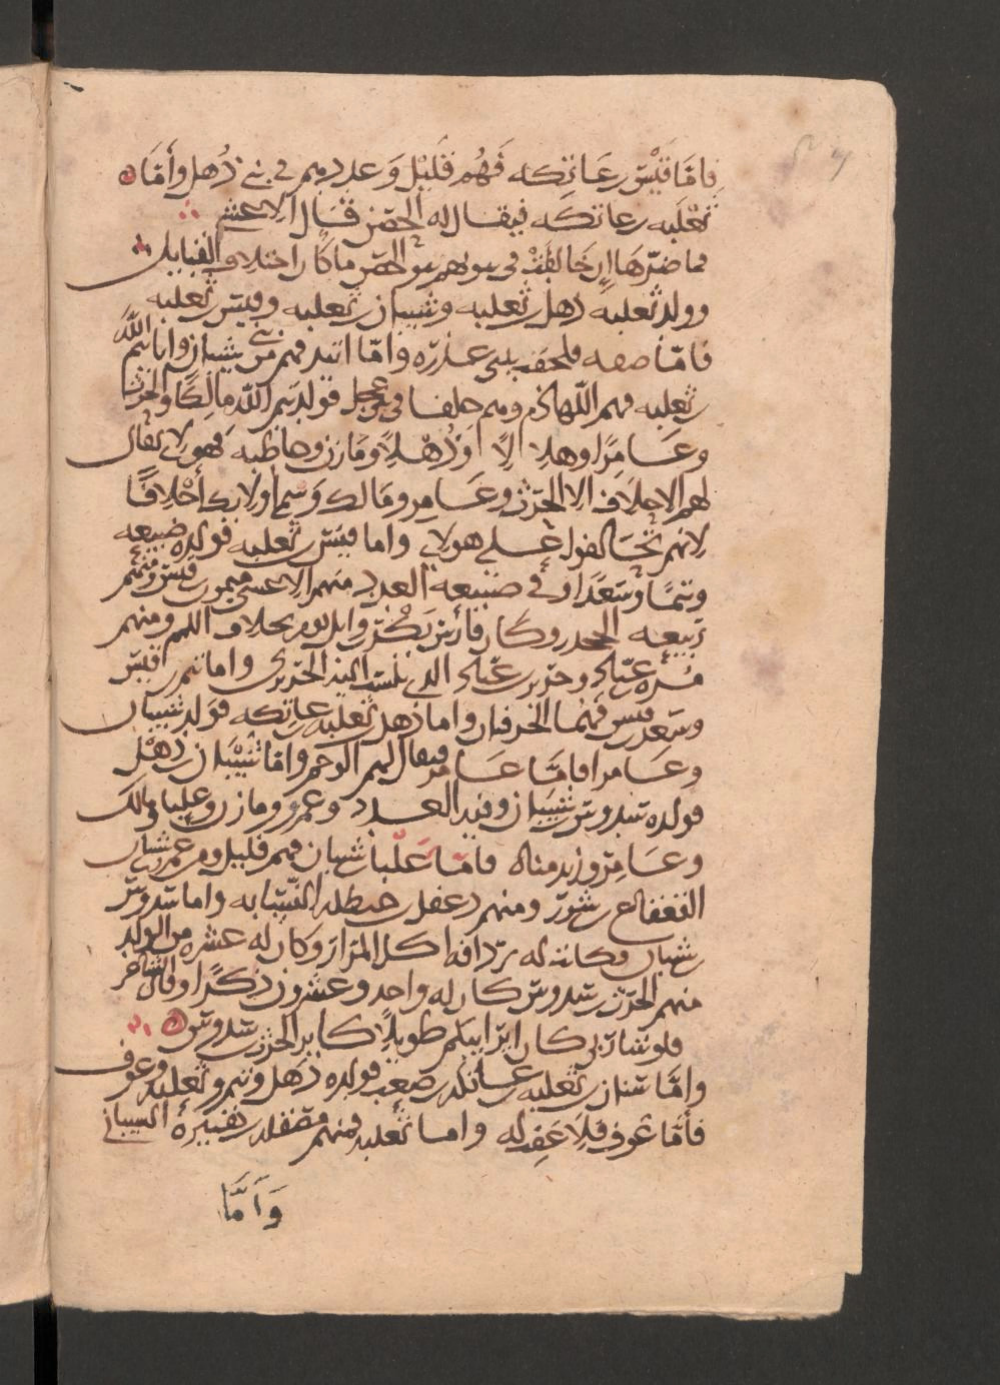 فاما قيس بن عاتكه فهم قليل وعددهم في بني ذهل وأما
ثعلبه بن عاتكه فيقال له الحصن قال الاعشى
فما ضرها إن خالفت في بيوتهم بنو الحصن ما كان اختلاف القبايل
وولد ثعلبه ذهل بن ثعلبه وشيبان بن ثعلبه وقيس بن ثعلبه
فاما ضنه فلحقت ببني عذره واما اتيد فهم من بني شيبان واما تيم الله
بن ثعلبه فهم اللهازم وهم حلفا في بني عجل فولد تيم الله مالكا والحرث
وعامرا وهلالا وذهلا ومازن وحاطبه فهولا يقال
لهم الاحلاف الا الحرث وعامر ومالك وسموا أولايك أحلافا
لانهم تحالفوا على هولا واما قيس بن ثعلبه فولده ضبيعه
وتيما وسعدا وفي ضبيعه العدد منهم الاعشى ميمون بن قيس ومنهم
ربيعه الجحدر وكان فارس بكر بن وايل يوم تحلاق اللمم ومنهم
مره بن عباد وجرير بن عباد الذي نسب اليه الجريري واما تيم بن قيس
وسعد بن قيس فهما الخرقتان واما ذهل بن ثعلبه بن عاتكه فولد شيبان
وعامرا فاما عامر فيقال لهم الوخم واما شيبان بن ذهل
فولده سدوس بن شيبان وفيه العدد وعمرو ومازن وعلبا ومالك
وعامر وزيد مناه فاما علبا بن شيبان فهم قليل ومن عمرو بن شيبان
القعقاع بن شور ومنهم دغفل بن حنظله النسابه واما سدوس
بن شيبان فكانت له ردافه اكل المرار وكان له عشره من الولد
منهم الحرث بن سدوس كان له واحد وعشرون ذكرا وقال الشاعر
فلو شا ربي كان اير ابيكم طويلا كاير الحرث بن سدوس
واما سنان بن ثعلبه بن عاتكه بن صعب فولده ذهل وتيم وثعلبه وعوف
فأما عوف فلا عقب له واما ثعلبه فمنهم مصقله بن هبيره الشيباني
وأما